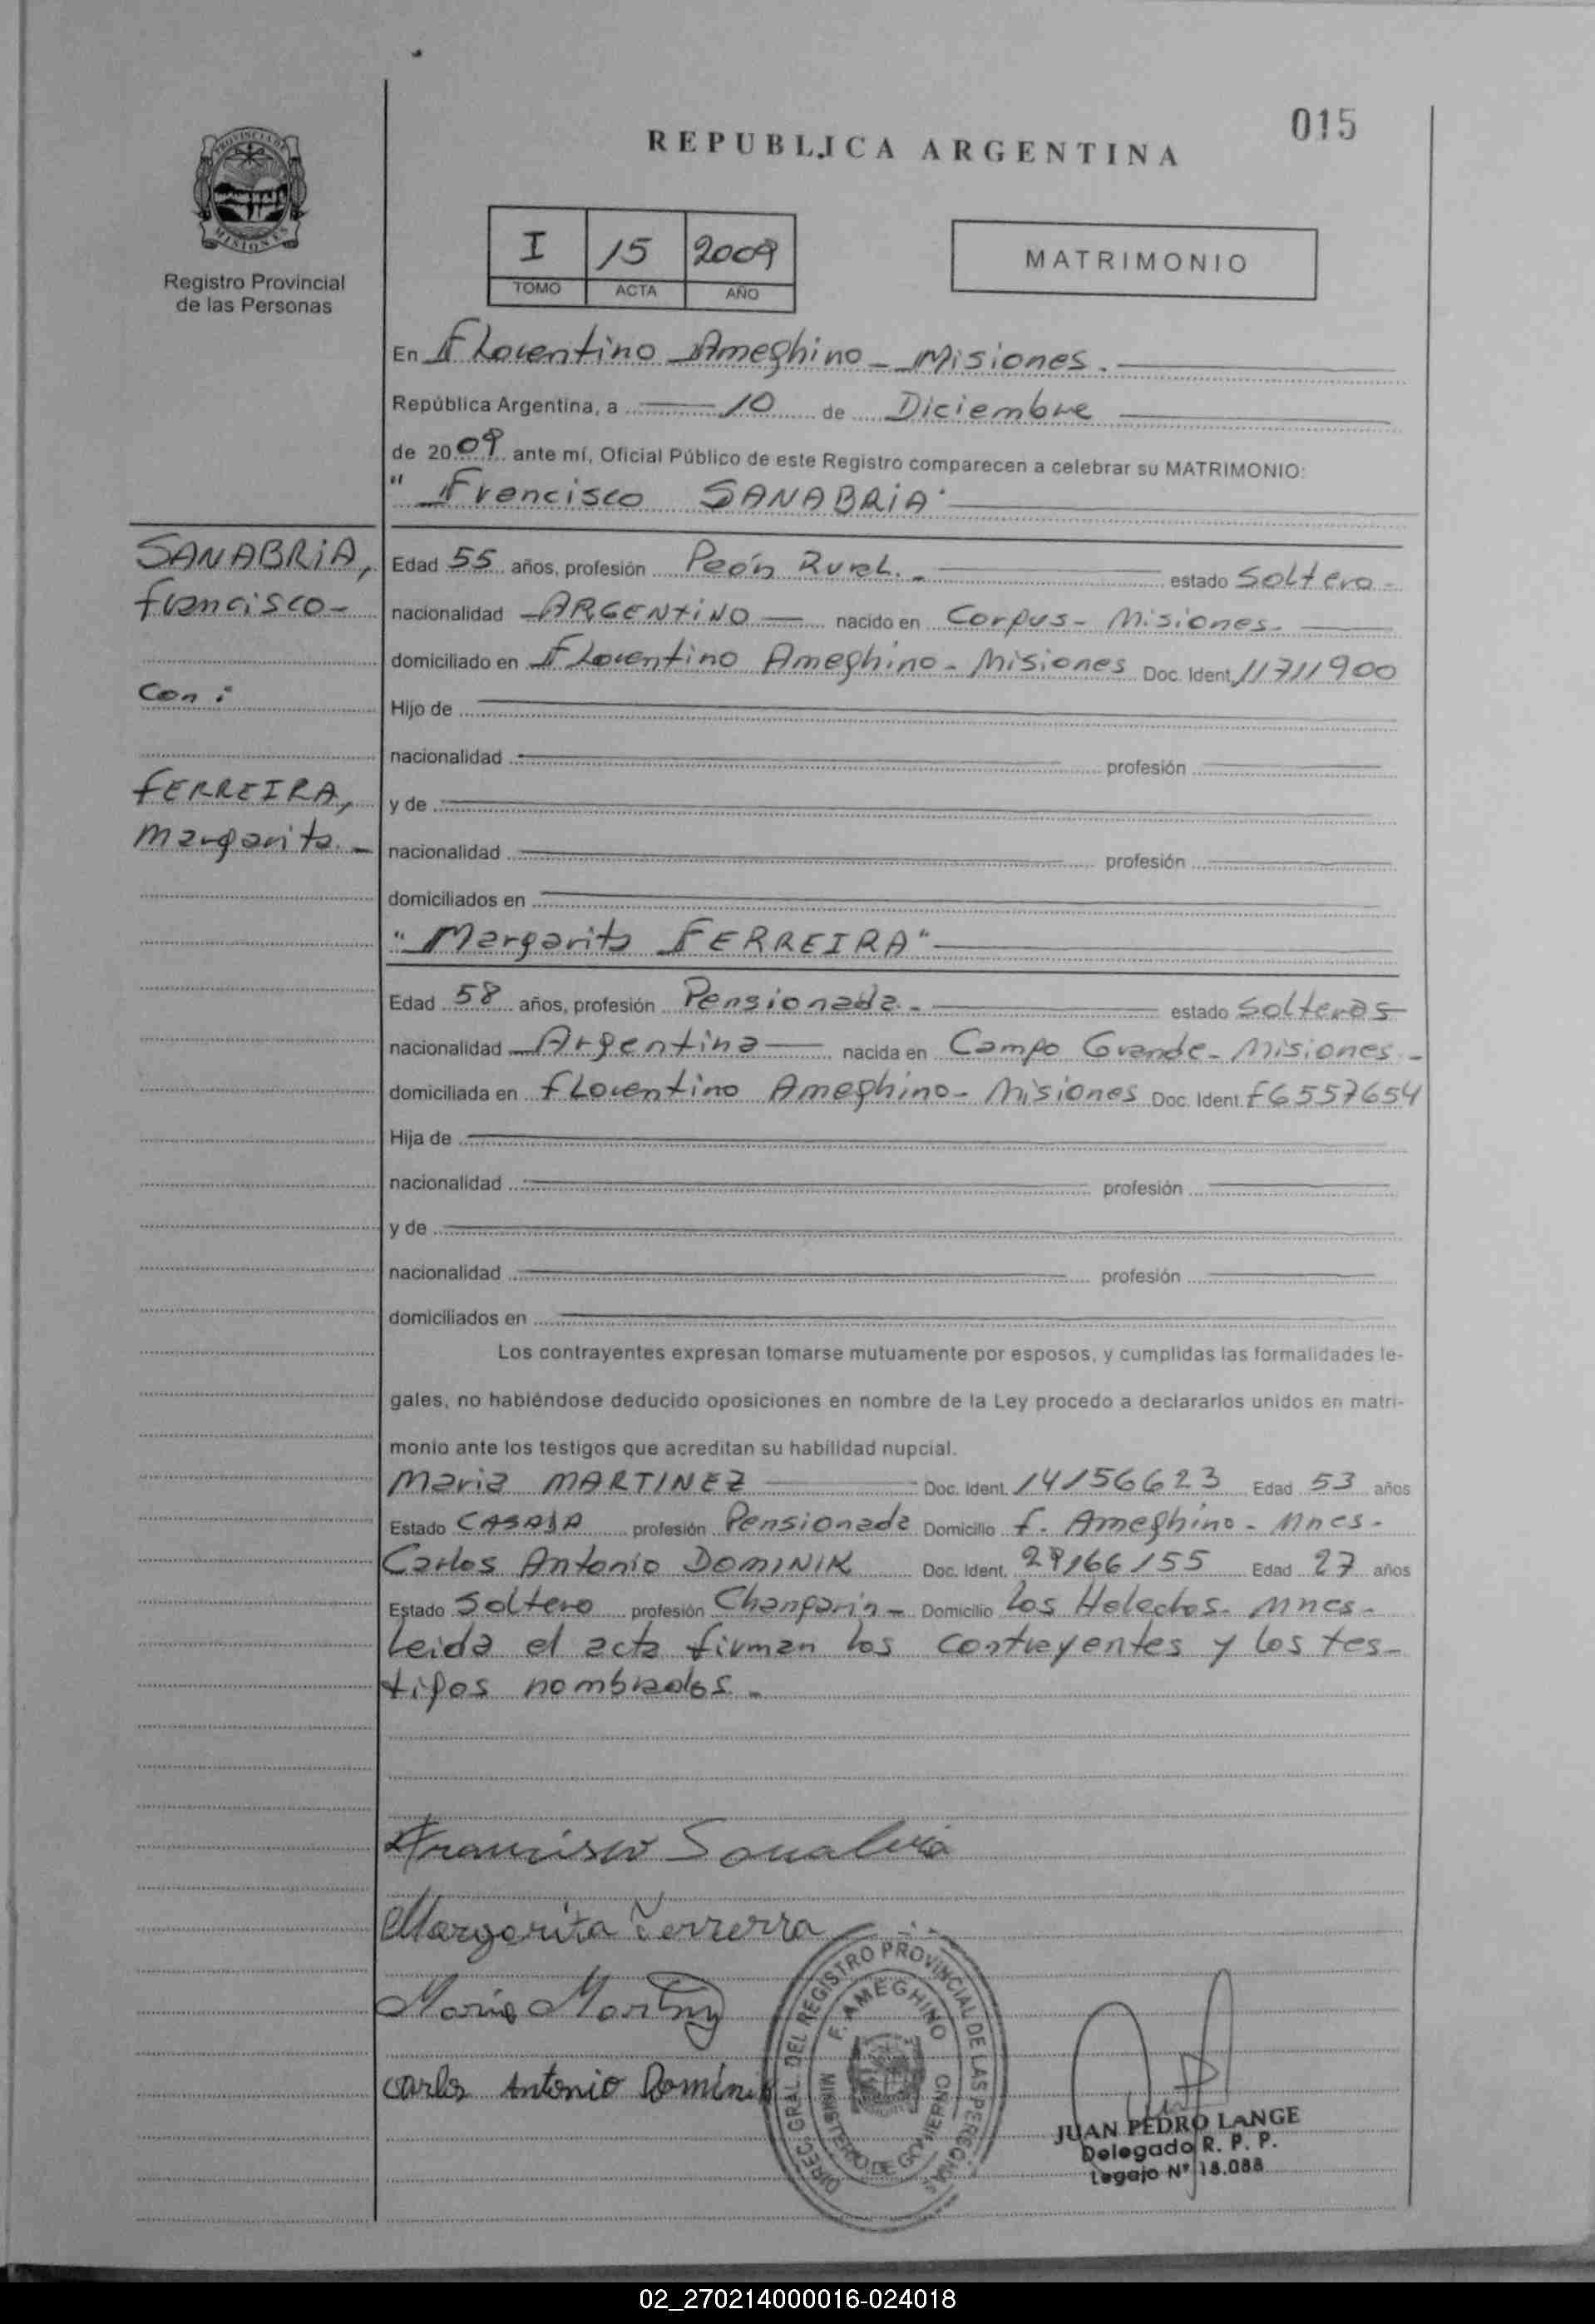 015
REPUBLICA ARGENTINA
PROVINCIA DE
MISIONES
Registro Provincial
de las Personas
I 15 2009
TOMO ACTA AÑO
MATRIMONIO
En Florentino Ameghino - Misiones.
República Argentina, a 10 de Diciembre
de 2009 ante mí, Oficial Público de este Registro comparecen a celebrar su MATRIMONIO:
" Francisco SANABRIA"
SANABRIA,
Francisco-
Con:
FERREIRA,
Margarita.-
Edad 55 años, profesión Peón Rural.- estado Soltero-
nacionalidad ARGENTINO nacido en Corpus- Misiones-
domiciliado en Florentino Ameghino- Misiones Doc. Ident. 11711900
Hijo de
nacionalidad profesión
y de
nacionalidad profesión
domiciliados en
"Margarita FERREIRA"
Edad 58 años, profesión Pensionada.- estado Solteras
nacionalidad Argentina nacida en Campo Grande- Misiones-
domiciliada en Florentino Ameghino- Misiones Doc. Ident. F6557654
Hija de
nacionalidad profesión
y de
nacionalidad profesión
domiciliados en
Los contrayentes expresan tomarse mutuamente por esposos, y cumplidas las formalidades le-
gales, no habiéndose deducido oposiciones en nombre de la Ley procedo a declararlos unidos en matri-
monio ante los testigos que acreditan su habilidad nupcial.
Maria MARTINEZ Doc. Ident. 14156623 Edad 53 años
Estado CASADA profesión Pensionada Domicilio F. Ameghino- Mnes-
Carlos Antonio DOMINIK Doc. Ident. 29166155 Edad 27 años
Estado Soltero profesión Changarin- Domicilio Los Helechos- Mnes-
Leida el acta firman los contrayentes y los tes-
tigos nombrados.-
Francisco Sanabria
Margarita Ferrerra
Maria Martinez
Carlos Antonio Dominik
DIREC. GRAL. DEL REGISTRO PROVINCIAL DE LAS PERSONAS
F. AMEGHINO
MINISTERIO DE GOBIERNO
JUAN PEDRO LANGE
Delegado R. P. P.
Legajo Nº 18.088
02_270214000016-024018